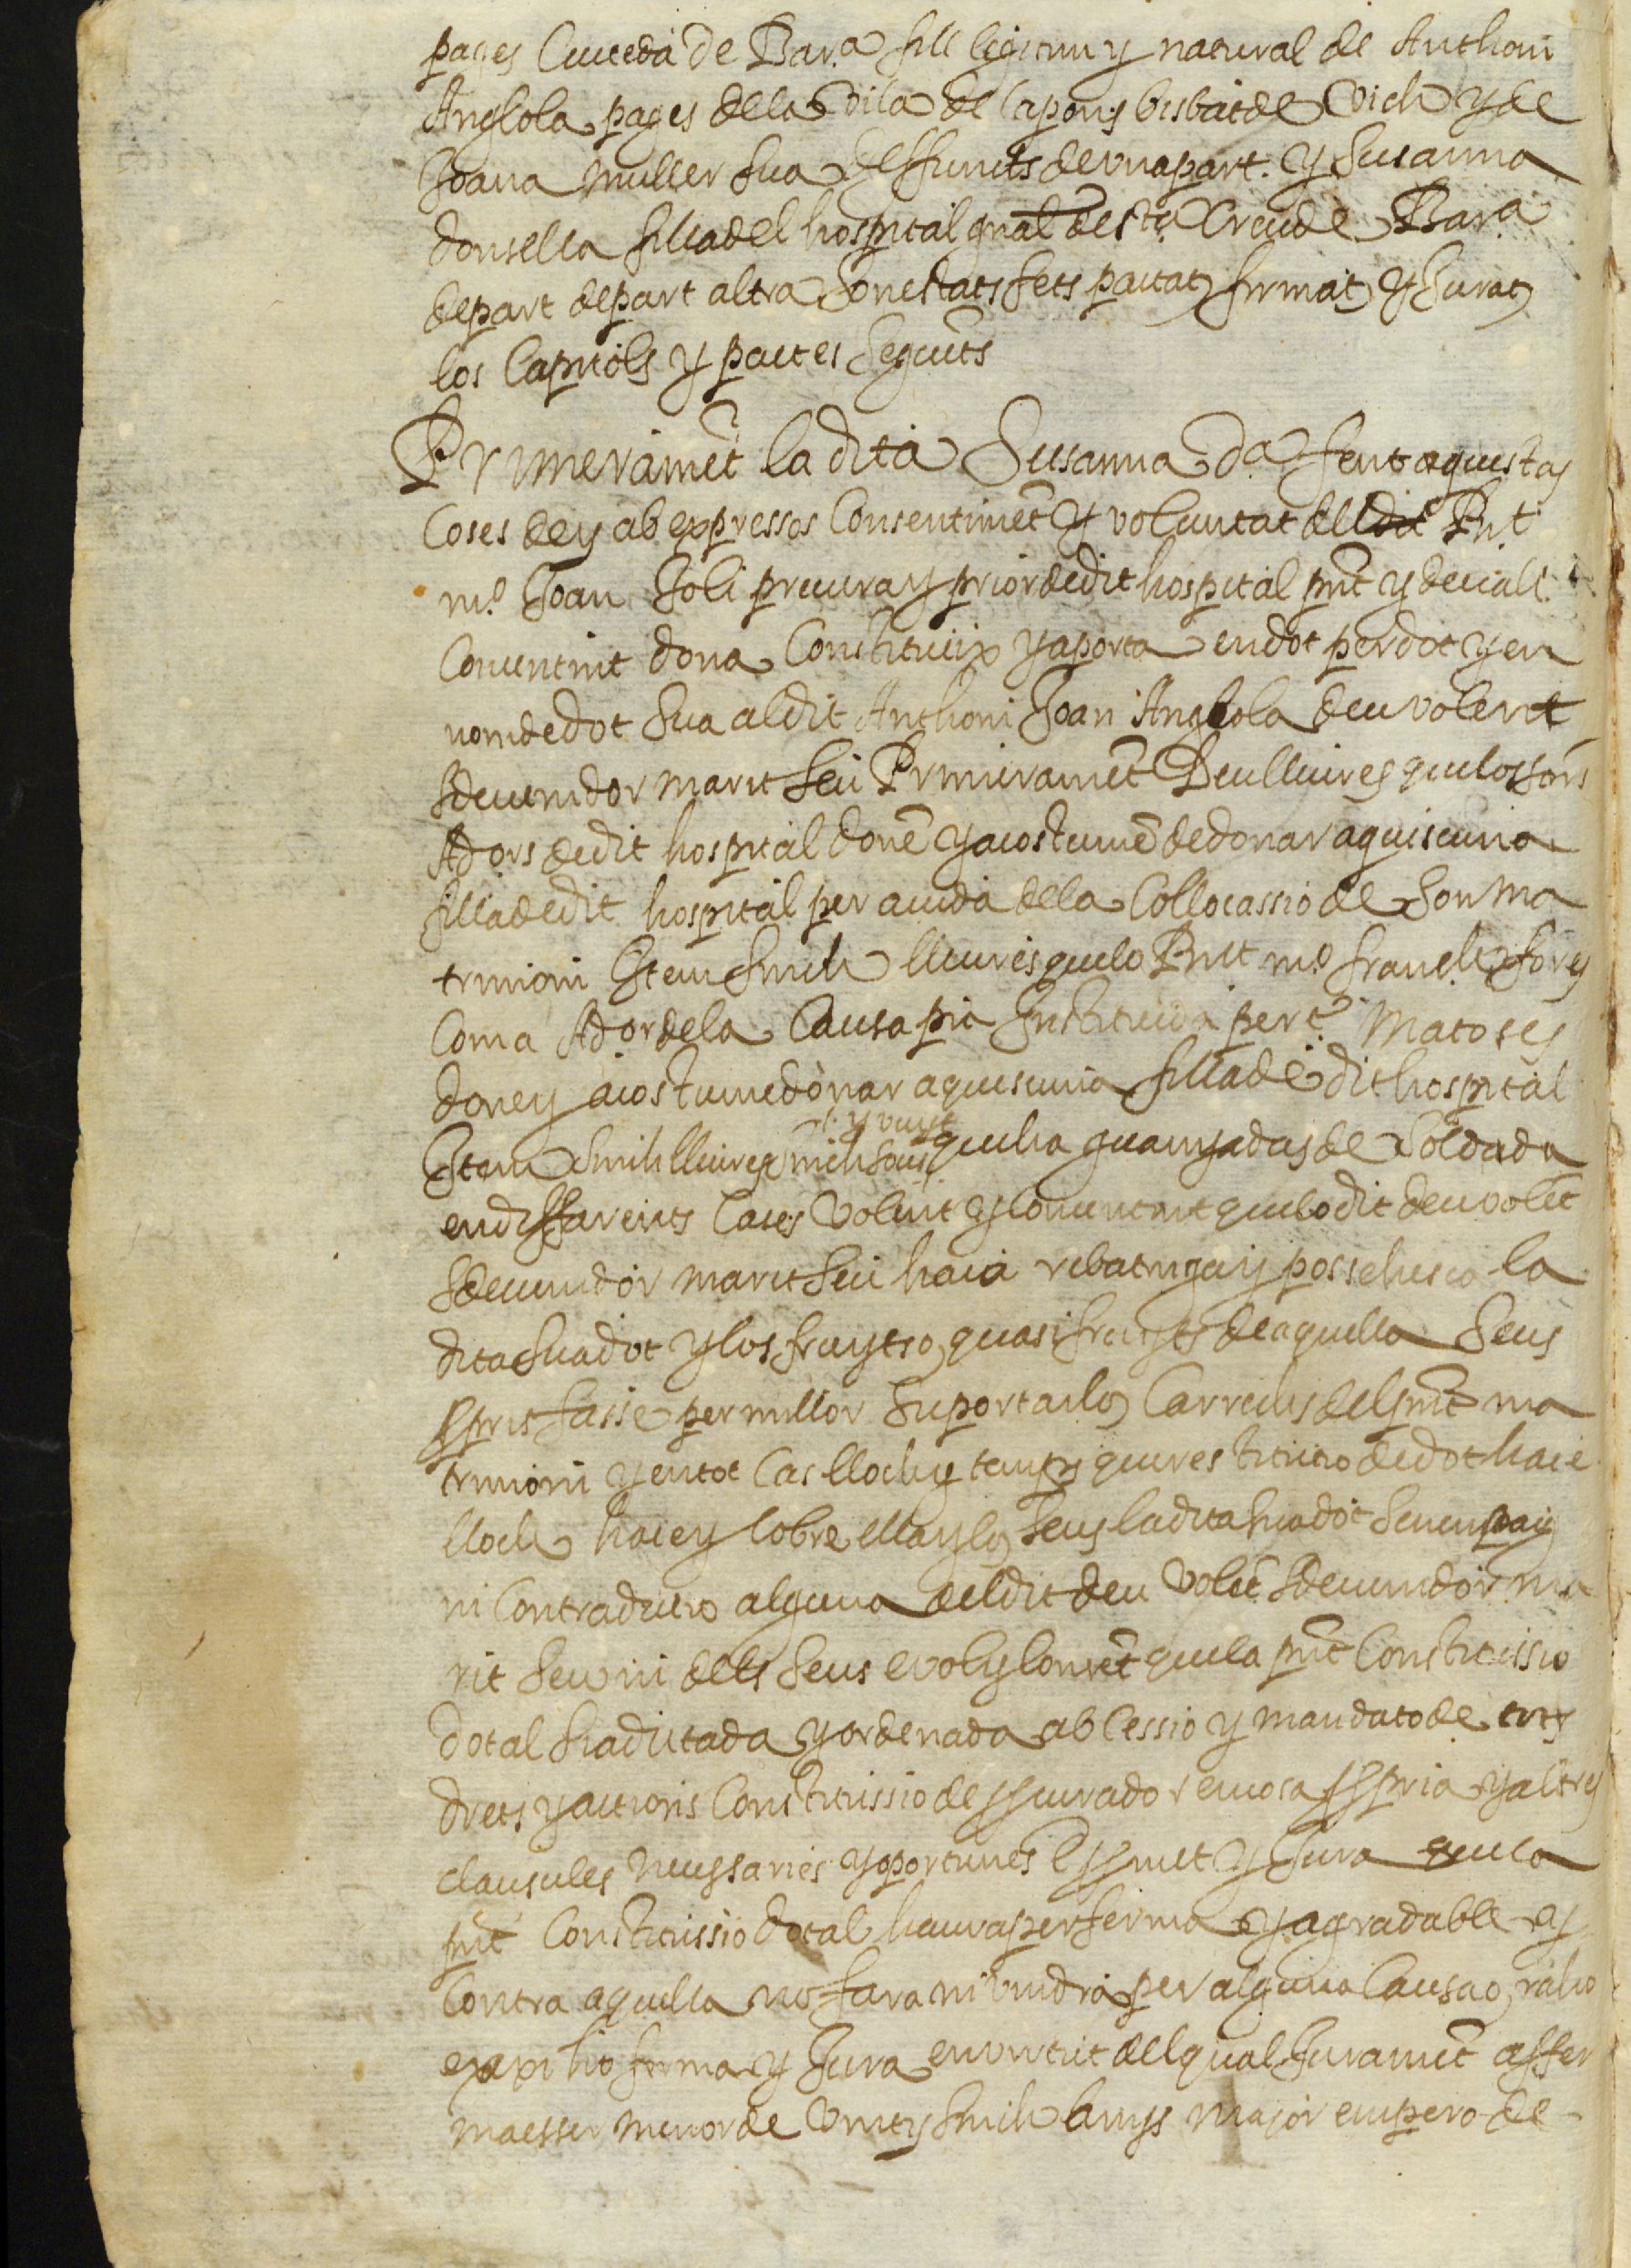 pages Ciutedà de Bar.ª fill legitim y natural de Anthoni
Anglola pages dela vila de la pons bisbat de Vich y de
Joana muller sua deffuncts de una part. y Susanna
donsella filla del hospital gnãl de S.ta Creu de Bar.ª
de part de part altra Son estats fets pactats firmats y Jurats
los Capitols y pactes seguẽts
Primeramẽt la dita Susanna d.ª fent aquestas
Coses de y ab expressos Consentimẽt y voluntat del dit Rnt
m.º Joan Soli prevera y prior de dit hospital pñt y de
Convenint dona Constitueix y aporta en dot per dot y en
nom de dot sua al dit Anthoni Joan Anglola deu volent
Sdevenidor marit seu Primeramẽt Deu lliures que los sors
Ad.ors de dit hospital donẽ y acostumẽ de donar a quiscuna
filla de dit hospital per aiuda de la Collocassio de son ma
trimoni Ittem Sinch lliures que lo Rnt m.º Franch
Com a Ad.or de la Causa pia Instituida per Matoses
done y acostume dònar a quiscuna filla de dit hospital
Ittem Sinch lliures sinch sous y vuyt que ha guanyadas de Soldada
en differents Cases volent y Convenint que lo dit deu volẽt
Sdevenidor marit seu haia reba tinga y possehesca la
dita sua dot y los fruyts o, quasi fruyts de aquella seus
ppris fasse per millor suportar los Carrechs del pñt ma
trimoni y en tot Cas lloch y temps que restitucio de dot haie
lloch haie y Cobre ella y los seus la dita sua dot sens
ni Contradictio alguna del dit deu volẽt Sdevenidor ma
rit seu ni dels seus e vol y Consẽt que la pñt Constitussio
dotal sia dictada y ordenada ab Cessio y mandato de tots
drets y actions Constitussio de pcurador en cosa ppria y altres
clausules necessaries y oportunes E pmet y Jura que la
pñt Constitussio dotal haura per ferma y agradable y
Contra aquella no fara ni vindra per alguna Causa o, raho
expilio firma y Jura en virtut del qual Juramẽt affer
ma esser menor de vint y Sinch anys major empero de